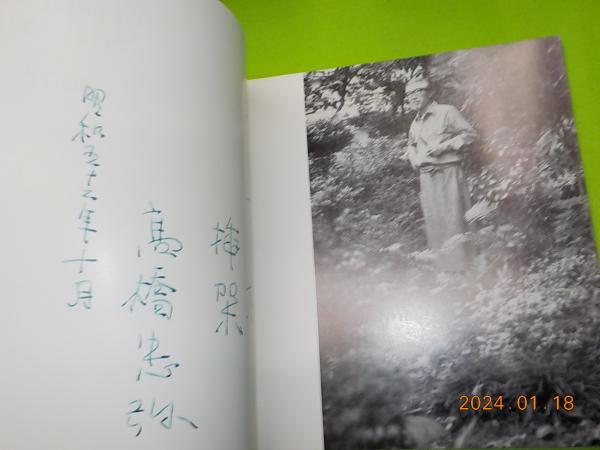 挿架
高橋忠弥
昭和五十三年十月
2024.01.18